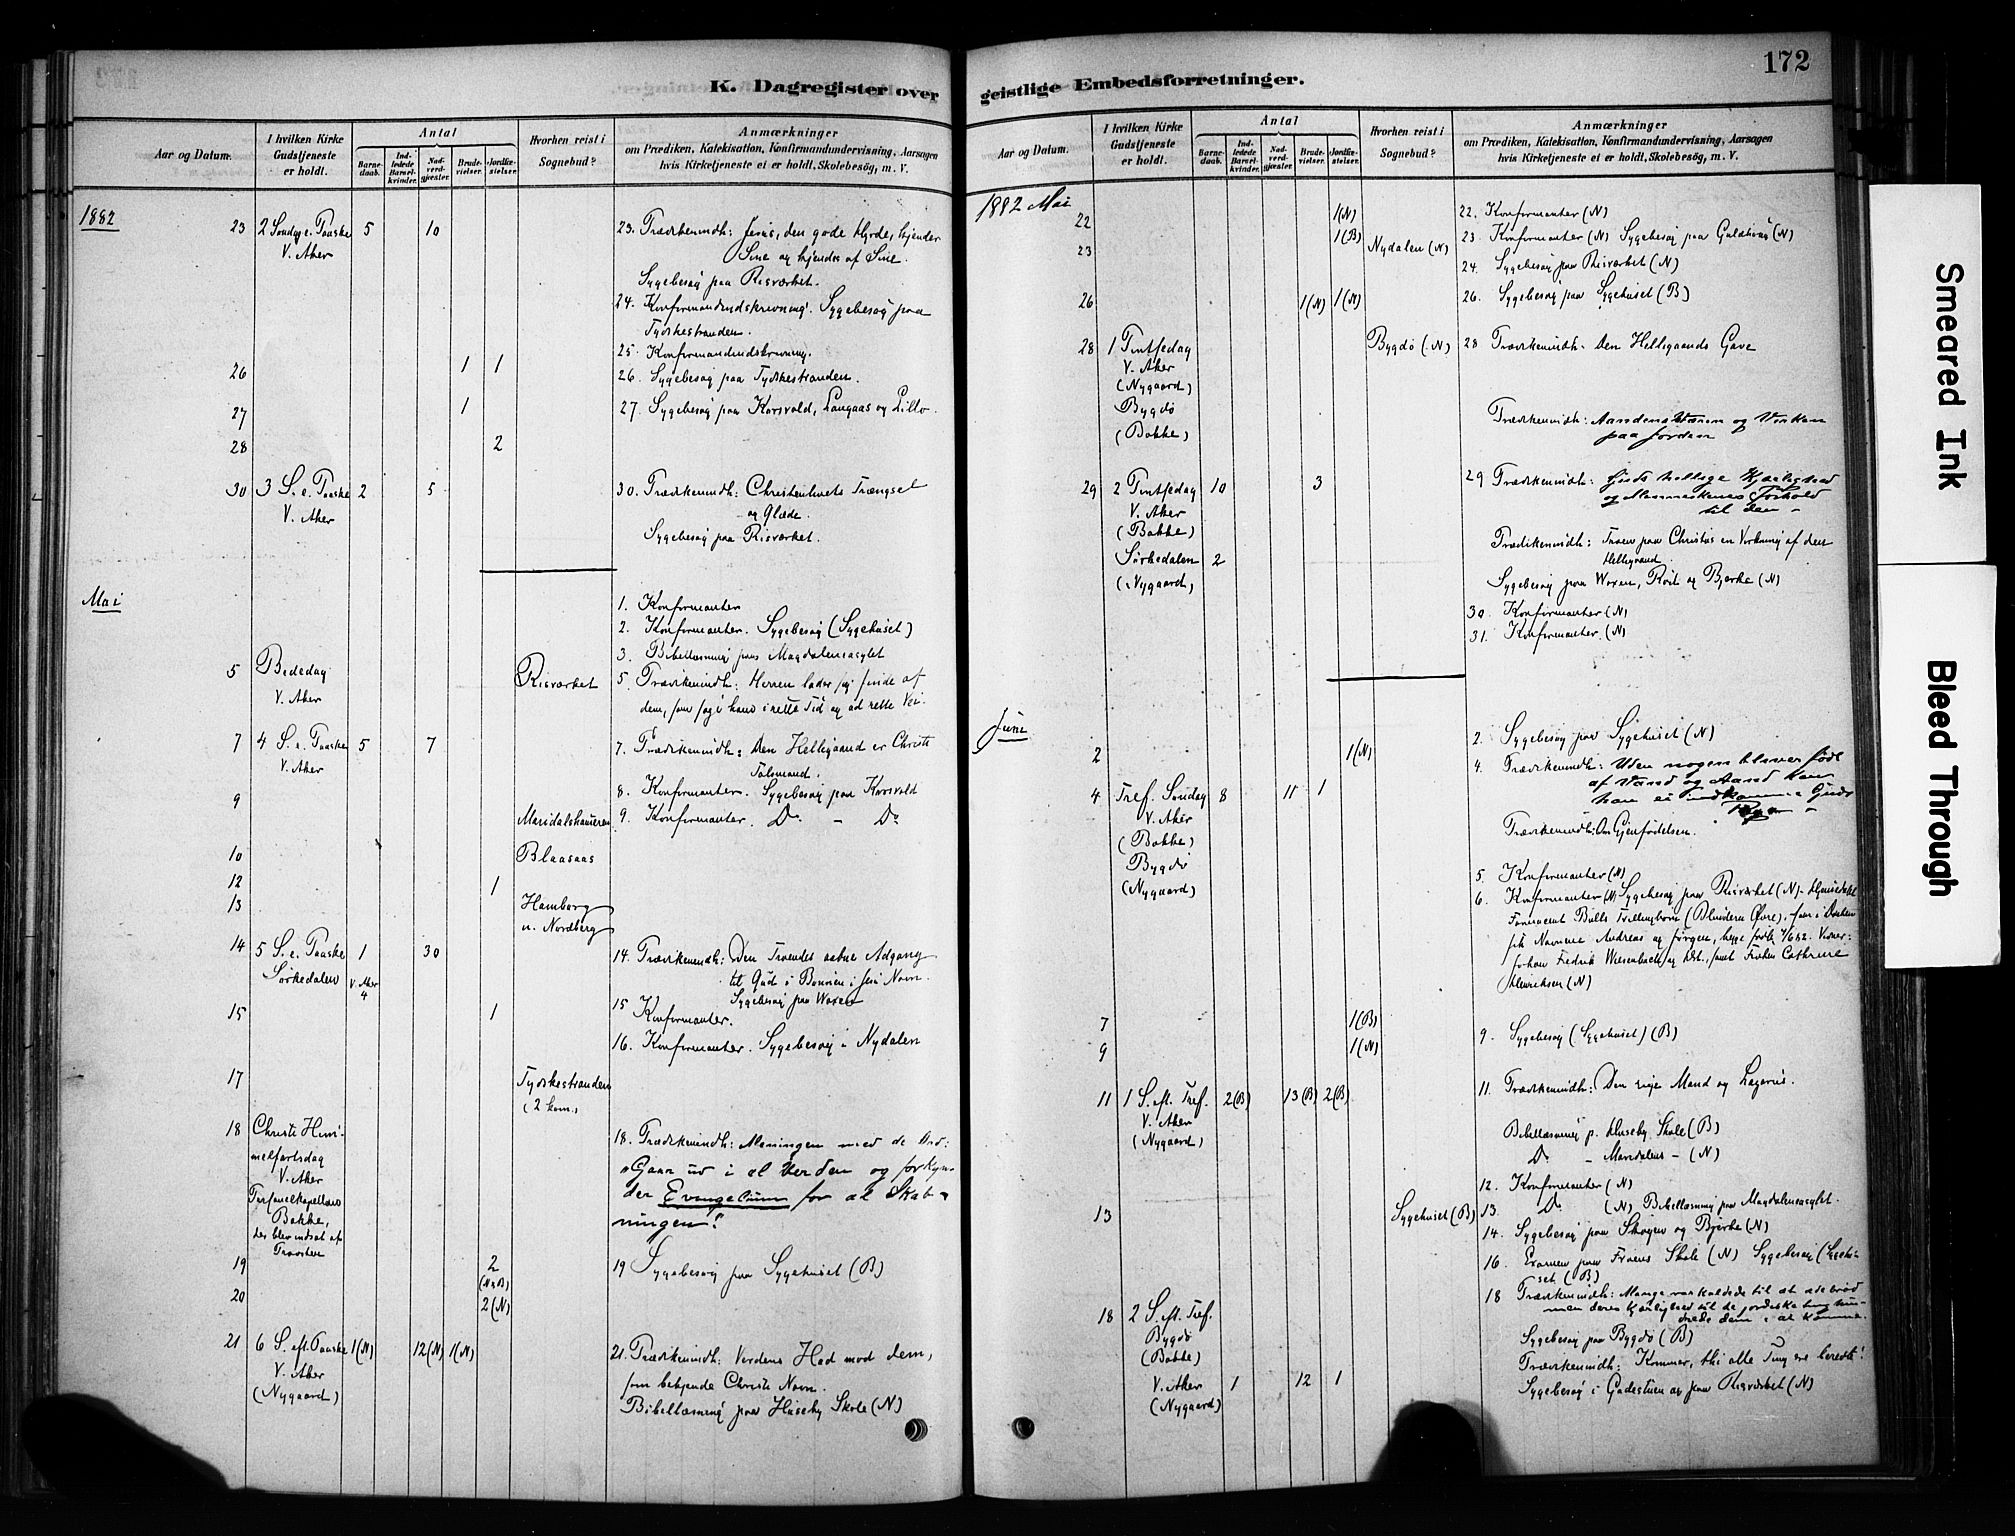 K. Dagregister over
Aar og Datum.
I hvilken Kirke Gudstjeneste er holdt.
Antal
Barne-daab.
Ind-ledede Barsel-kvinder.
Nad-verd-gjæster
Brude-vielser.
Jordfæ-stelser
Hvorhen reist i Sognebud?
Anmærkninger
om Prædiken, Katekisation, Konfirmandundervisning, Aarsagen
hvis Kirketjeneste ei er holdt, Skolebesög, m. V.
1882
23 2 Søndag e. Paaske 5 10 23. Prædikenindh: Jesus, den gode Hyrde, kjender
V. Aker Sine og kjendes af Sine.
Sygebesøg paa Risværket.
24. Konfirmandindskrivning. Sygebesøg paa
Tyskestranden.
25. Konfirmandindskrivning.
26 1 1 26. Sygebesøg paa Tyskestranden.
27 1 27. Sygebesøg paa Korsvold, Langaas og Lillo.
28 2
30 3 S. e. Paaske 2 5 30. Prædikenindh: Christenlivets Trængsel
V. Aker og Glæde.
Sygebesøg paa Risværket.
Mai
1. Konfirmanter
2. Konfirmanter. Sygebesøg (Sygehuset)
3. Bibellæsning paa Magdalenasylet
5 Bededag Risværket 5. Prædikenindh: Herren lader sig finde af
V. Aker dem, som søge ham i rette Tid og ad rette Vei.
7 4 S. e. Paaske 5 7 7. Prædikenindh: Den Helligaand er Christi
V. Aker Talsmand.
8. Konfirmanter. Sygebesøg paa Korsvold
9 Maridalshammeren 9. Konfirmanter. Do - Do
10 Blaasaas
12 1
13 Hamborg
n. Nordberg
14 5 S. e. Paaske 1 30 14. Prædikenindh: Den Troendes aabne Adgang
Sørkedalen V. Aker 4 til Gud i Bønnen i Jesu Navn.
Sygebesøg paa Woxen
15 1 15 Konfirmanter.
16. Konfirmanter. Sygebesøg i Nydalen
17 Tyskestranden
(2 kom.)
18 Christi Him- 18. Prædikenindh: Meningen med de Ord:
melfartsdag "Gaar ud i al Verden og forkyn-
V. Aker der Evangelium for al Skab-
Personelkapellan ningen".
Bakke,
der blev indsat af
Provsten
19 2 (N&B) 19 Sygebesøg paa Sygehuset (B)
20 2 (N)
21 6 S. eft. Paaske 1(N) 12(N) 1(N) 21. Prædikenindh: Verdens Had mod dem,
V. Aker som bekjende Christi Navn.
(Nygaard) Bibellæsning paa Huseby Skole (N)
geistlige Embedsforretninger.
172
Aar og Datum.
I hvilken Kirke Gudstjeneste er holdt.
Antal
Barne-daab.
Ind-ledede Barsel-kvinder.
Nad-verd-gjæster
Brude-vielser.
Jordfæ-stelser.
Hvorhen reist i Sognebud?
Anmærkninger
om Prædiken, Katekisation, Konfirmandundervisning, Aarsagen
hvis Kirketjeneste ei er holdt, Skolebesög, m. V.
1882 Mai
22 1(N) 22. Konfirmanter (N)
23 1(B) Nydalen (N) 23. Konfirmanter (N) Sygebesøg paa (N)
24. Sygebesøg paa Risværket (N)
26 1(N) 1(N) 26. Sygebesøg paa Sygehuset (B)
28 1 Pintsedag Bygdø (N) 28 Prædikenindh: Den Helligaands Gave
V. Aker
(Nygaard)
Bygdø Prædikenindh: Aandens Væren og Virken
(Bakke) paa Jorden
29 2 Pintsedag 10 3 29 Prædikenindh: Guds hellige Kjærlighed
V. Aker og Menneskenes Forhold
(Bakke) til den -
Sørkedalen 2 Prædikenindh: Troen paa Christus en Virkning af den
(Nygaard) Helligaand.
Sygebesøg paa Woxen, Røil og Bjerke (N)
30. Konfirmanter (N)
31. Konfirmanter (N)
Juni
2 1(N) 2. Sygebesøg paa Sygehuset (N)
4 Tref. Søndag 8 11 1 4. Prædikenindh: Uden nogen bliver født
V. Aker af Vand og Aand kan
(Bakke) han ei indkomme i Guds
Bygdø Rige -
(Nygaard) Prædikenindh: Om Gjenfødelsen.
5. Konfirmanter (N)
6. Konfirmanter (N) Sygebesøg paa Risværket (N).
(Blindern Øvre), som i Daaben
fik Navnene Andreas og Jørgen, begge født
Johan Fredrik og samt Frøken Cathrine
Henriksen (N)
7 1(B)
9 1(N) 9. Sygebesøg (Sygehuset) (B)
11 1 S. eft. Tref. 2(B) 13(B) 2(B) 11. Prædikenindh: Den rige Mand og Lazarus.
V. Aker Bibellæsning p. Huseby Skole (B)
(Nygaard) Do - Maridalens - (N)
12. Konfirmanter (N)
13 Sygehuset (B) 13. Do (N) Bibellæsning paa Magdalenasylet.
14. Sygebesøg paa Skøyen og Bjerke (N)
16. Examen paa Frøens Skole (N) Sygebesøg (Sygehu-
set (B)
18 2 S. eft. Tref. 18 Prædikenindh: Mange var kaldede til at æde brød
Bygdø men deres Kærlighed til de jordiske ting hin-
(Bakke) drede dem i at komme.
Sygebesøg paa Bygdø (B)
V. Aker 1 12 1 Prædikenindh: Kommer, thi alle Ting ere beredte!
(Nygaard) Sygebesøg i Gadestuen og paa Risværket (N)
Smeared Ink
Bleed Through